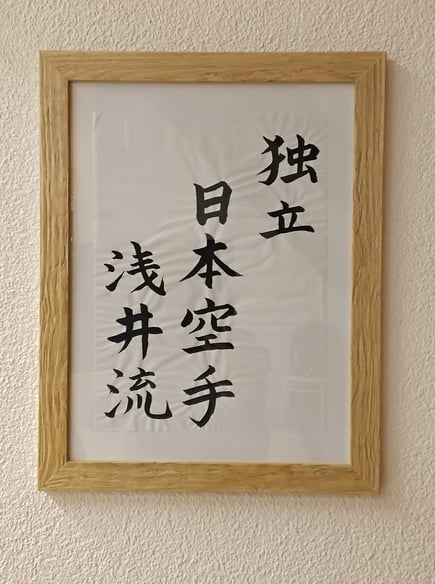 独立
日本空手
浅井流